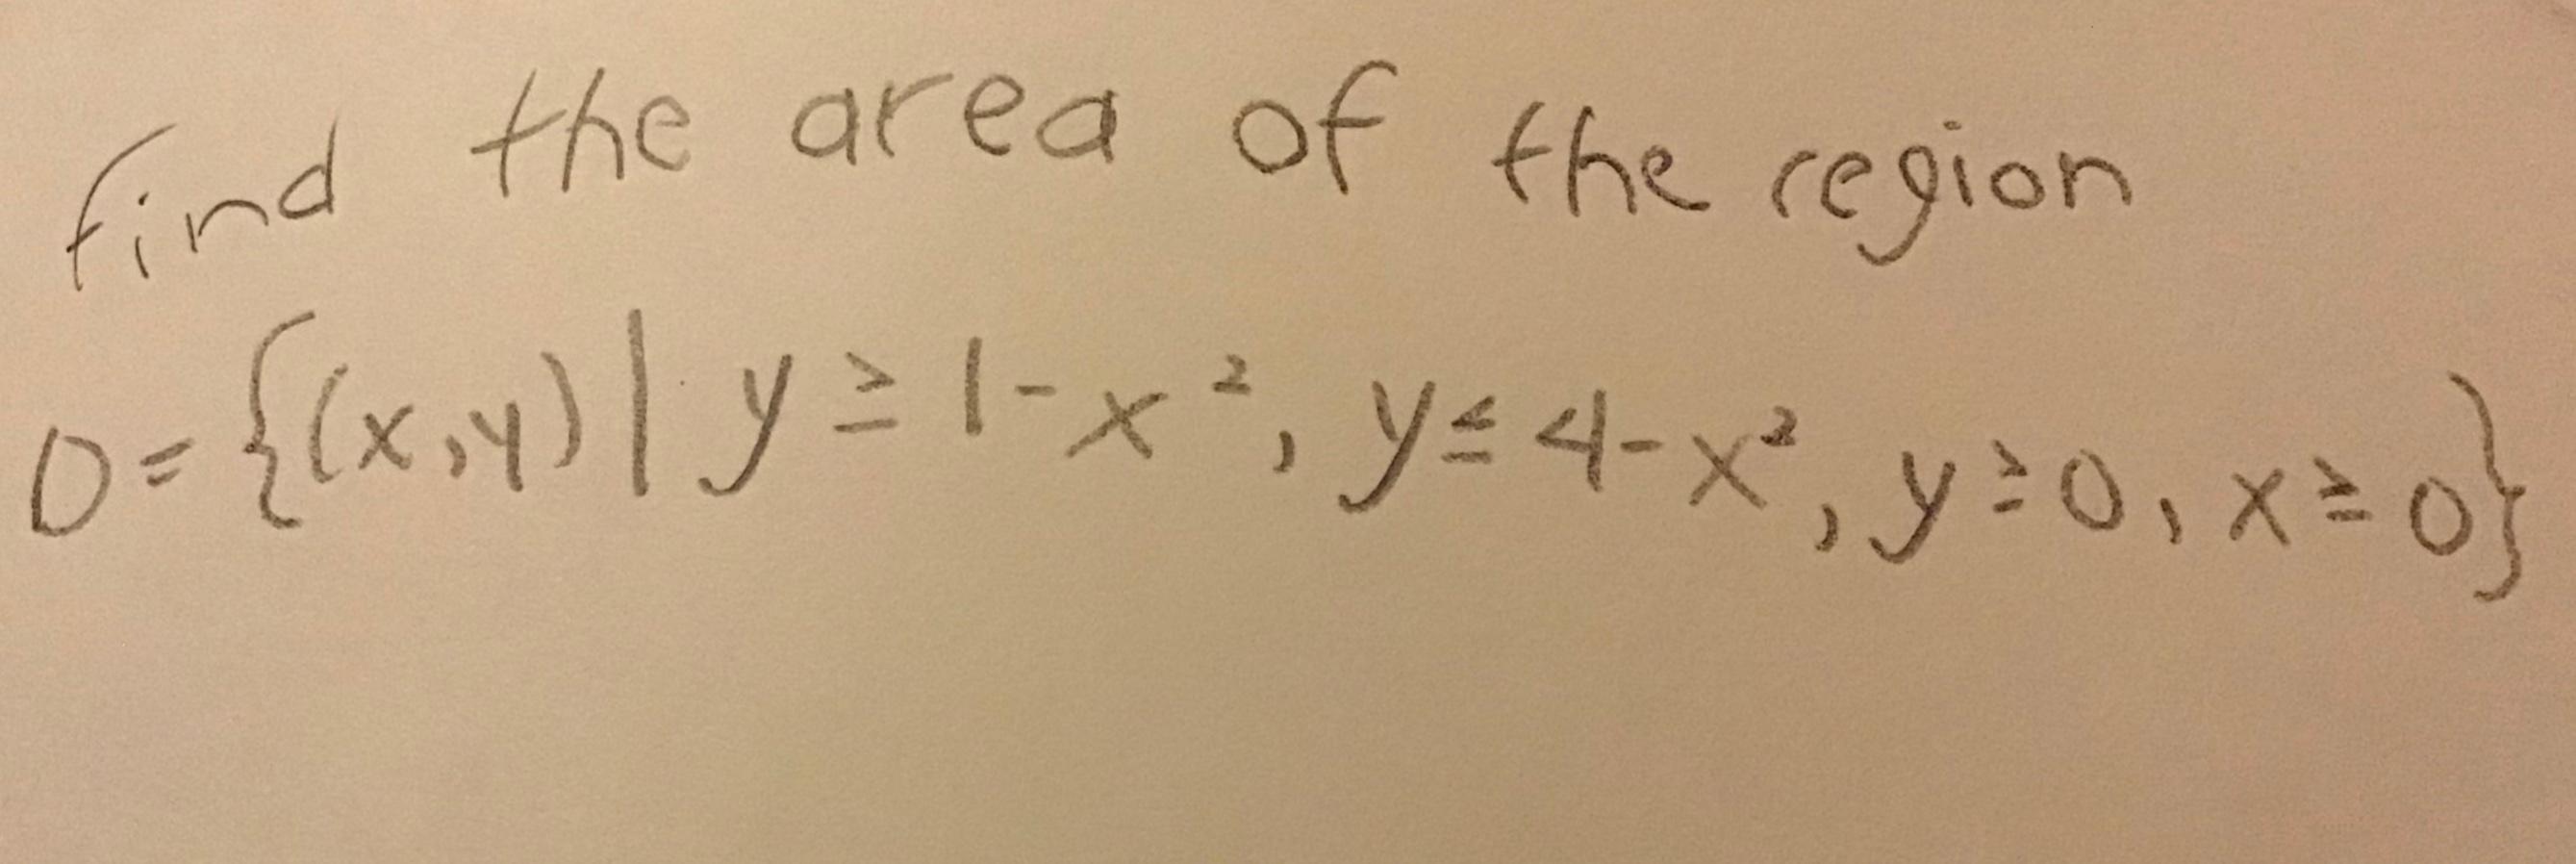 find the area of the region
D = {(x,y) | y ≥ 1-x², y ≤ 4-x², y ≥ 0, x ≥ 0}